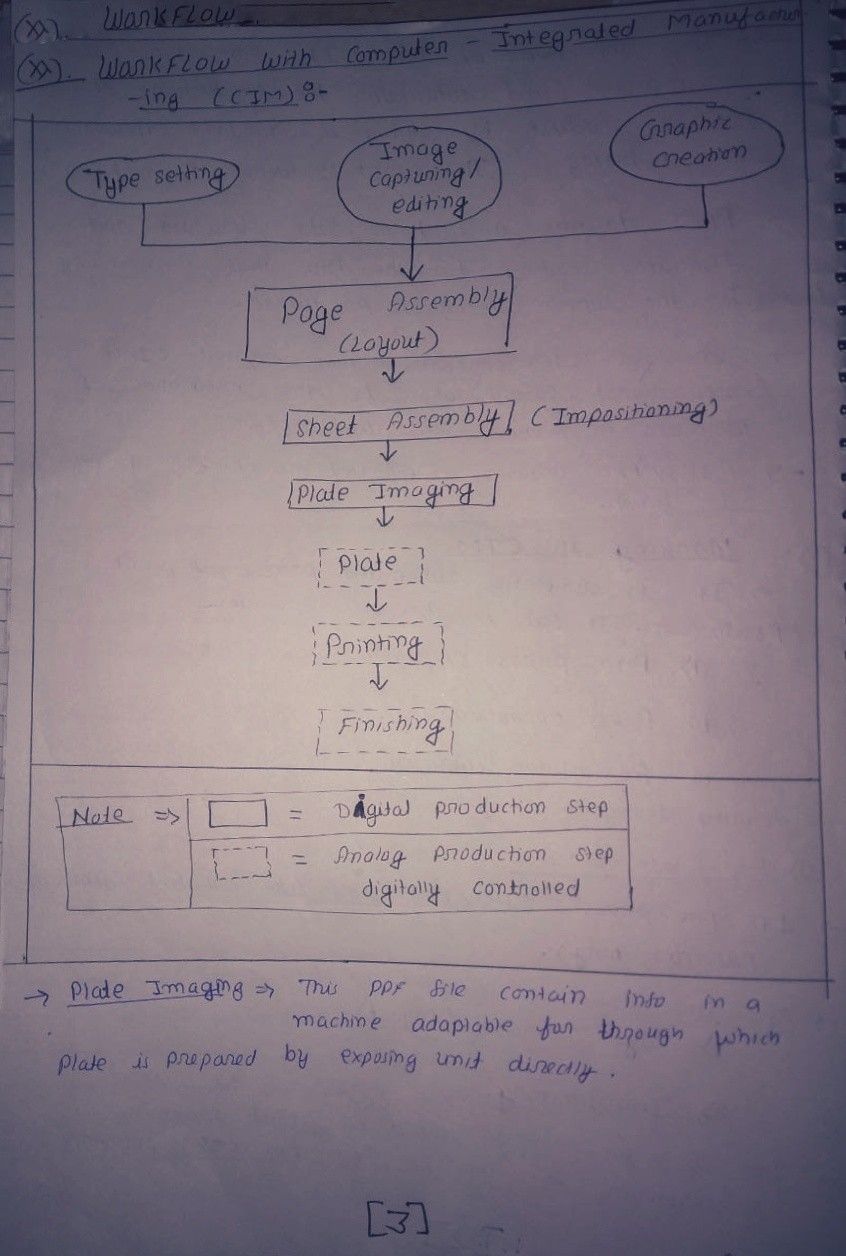 (xx). Workflow.
(xx). Workflow with Computer - Integrated Manufactur
-ing (CIM) :-
Type setting
Image
capturing/
editing
Graphic
creation
Page Assembly
(Layout)
Sheet Assembly (Impositioning)
Plate Imaging
Plate
Printing
Finishing
Note => = Digital production step
= Analog production step
digitally controlled
→ Plate Imaging => This PPF file contain info in a
machine adaptable for through which
plate is prepared by exposing unit directly.
[3]